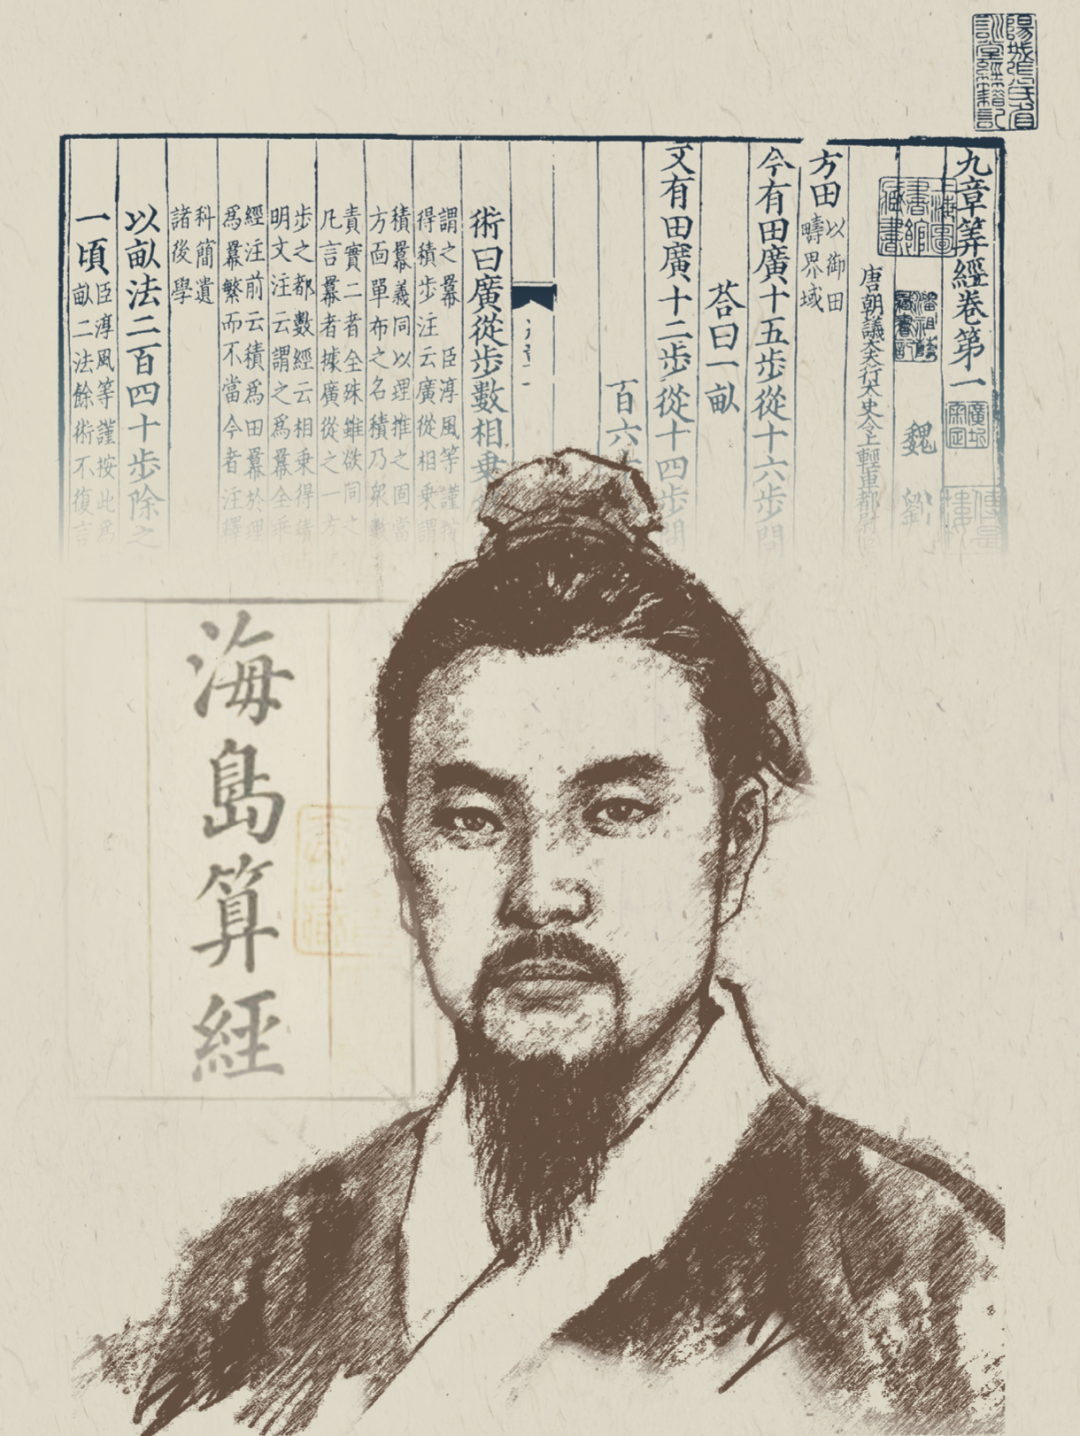 九章筭經卷第一
魏 劉
唐朝議大夫行太史令上輕車都尉
方田以御田疇界域
今有田廣十五步從十六步問
荅曰一畝
又有田廣十二步從十四步問
百六
術曰廣從步數相乗
謂之冪 臣淳風等謹按
得積步注云廣從相乗謂
積冪義同以理推之固當
方面單布之名積乃衆數
責實二者全殊雖欲同之
凡言冪者據廣從之一方
步之都數經云相乗得積
明文注云謂之爲冪全乖
經注前云積爲田冪於理
爲冪繁而不當今者注釋
科簡遺
諸後學
以畝法二百四十步除之
一頃
臣淳風等謹按此爲
畝二法餘術不復言
海島算經